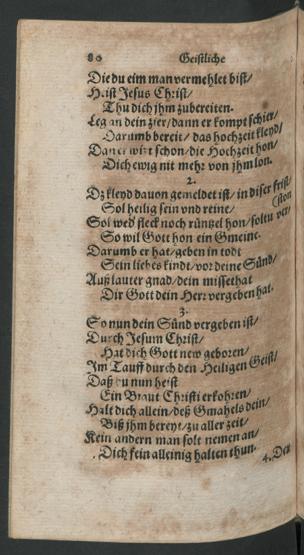 80 Geistliche
Die du eim man vermehlet bist/
Heist Jesus Christ/
Thu dich jhm zubereiten.
Leg an dein zier/ dann er kompt schier/
Darumb bereit/ das hochzeit kleyd/
Daner wirt schon/ die Hochzeit hon/
Dich ewig nit mehr von jhm lon.
2.
Dz kleyd dauon gemeldet ist/ in diser frist/
Sol heilig sein vnd reine/ (ston
Sol wed' fleck noch rüntzel hon/ soltu ver/
So wil Gott hon ein Gmeine.
Darumb er hat/ geben in todt
Sein liebes kindt/ vor deine Sünd/
Auß lauter gnad/ dein missethat
Dir Gott dein Herr vergeben hat.
3.
So nun dein Sünd vergeben ist/
Durch Jesum Christ/
Hat dich Gott new geboren/
Im Tauff durch den Heiligen Geist/
Daß du nun heist
Ein Braut Christi erkohren/
Halt dich allein/ deß Gmahels dein/
Biß jhm bereyt/ zu aller zeit/
Kein andern man solt nemen an/
Dich sein alleinig halten thun.
4. Den